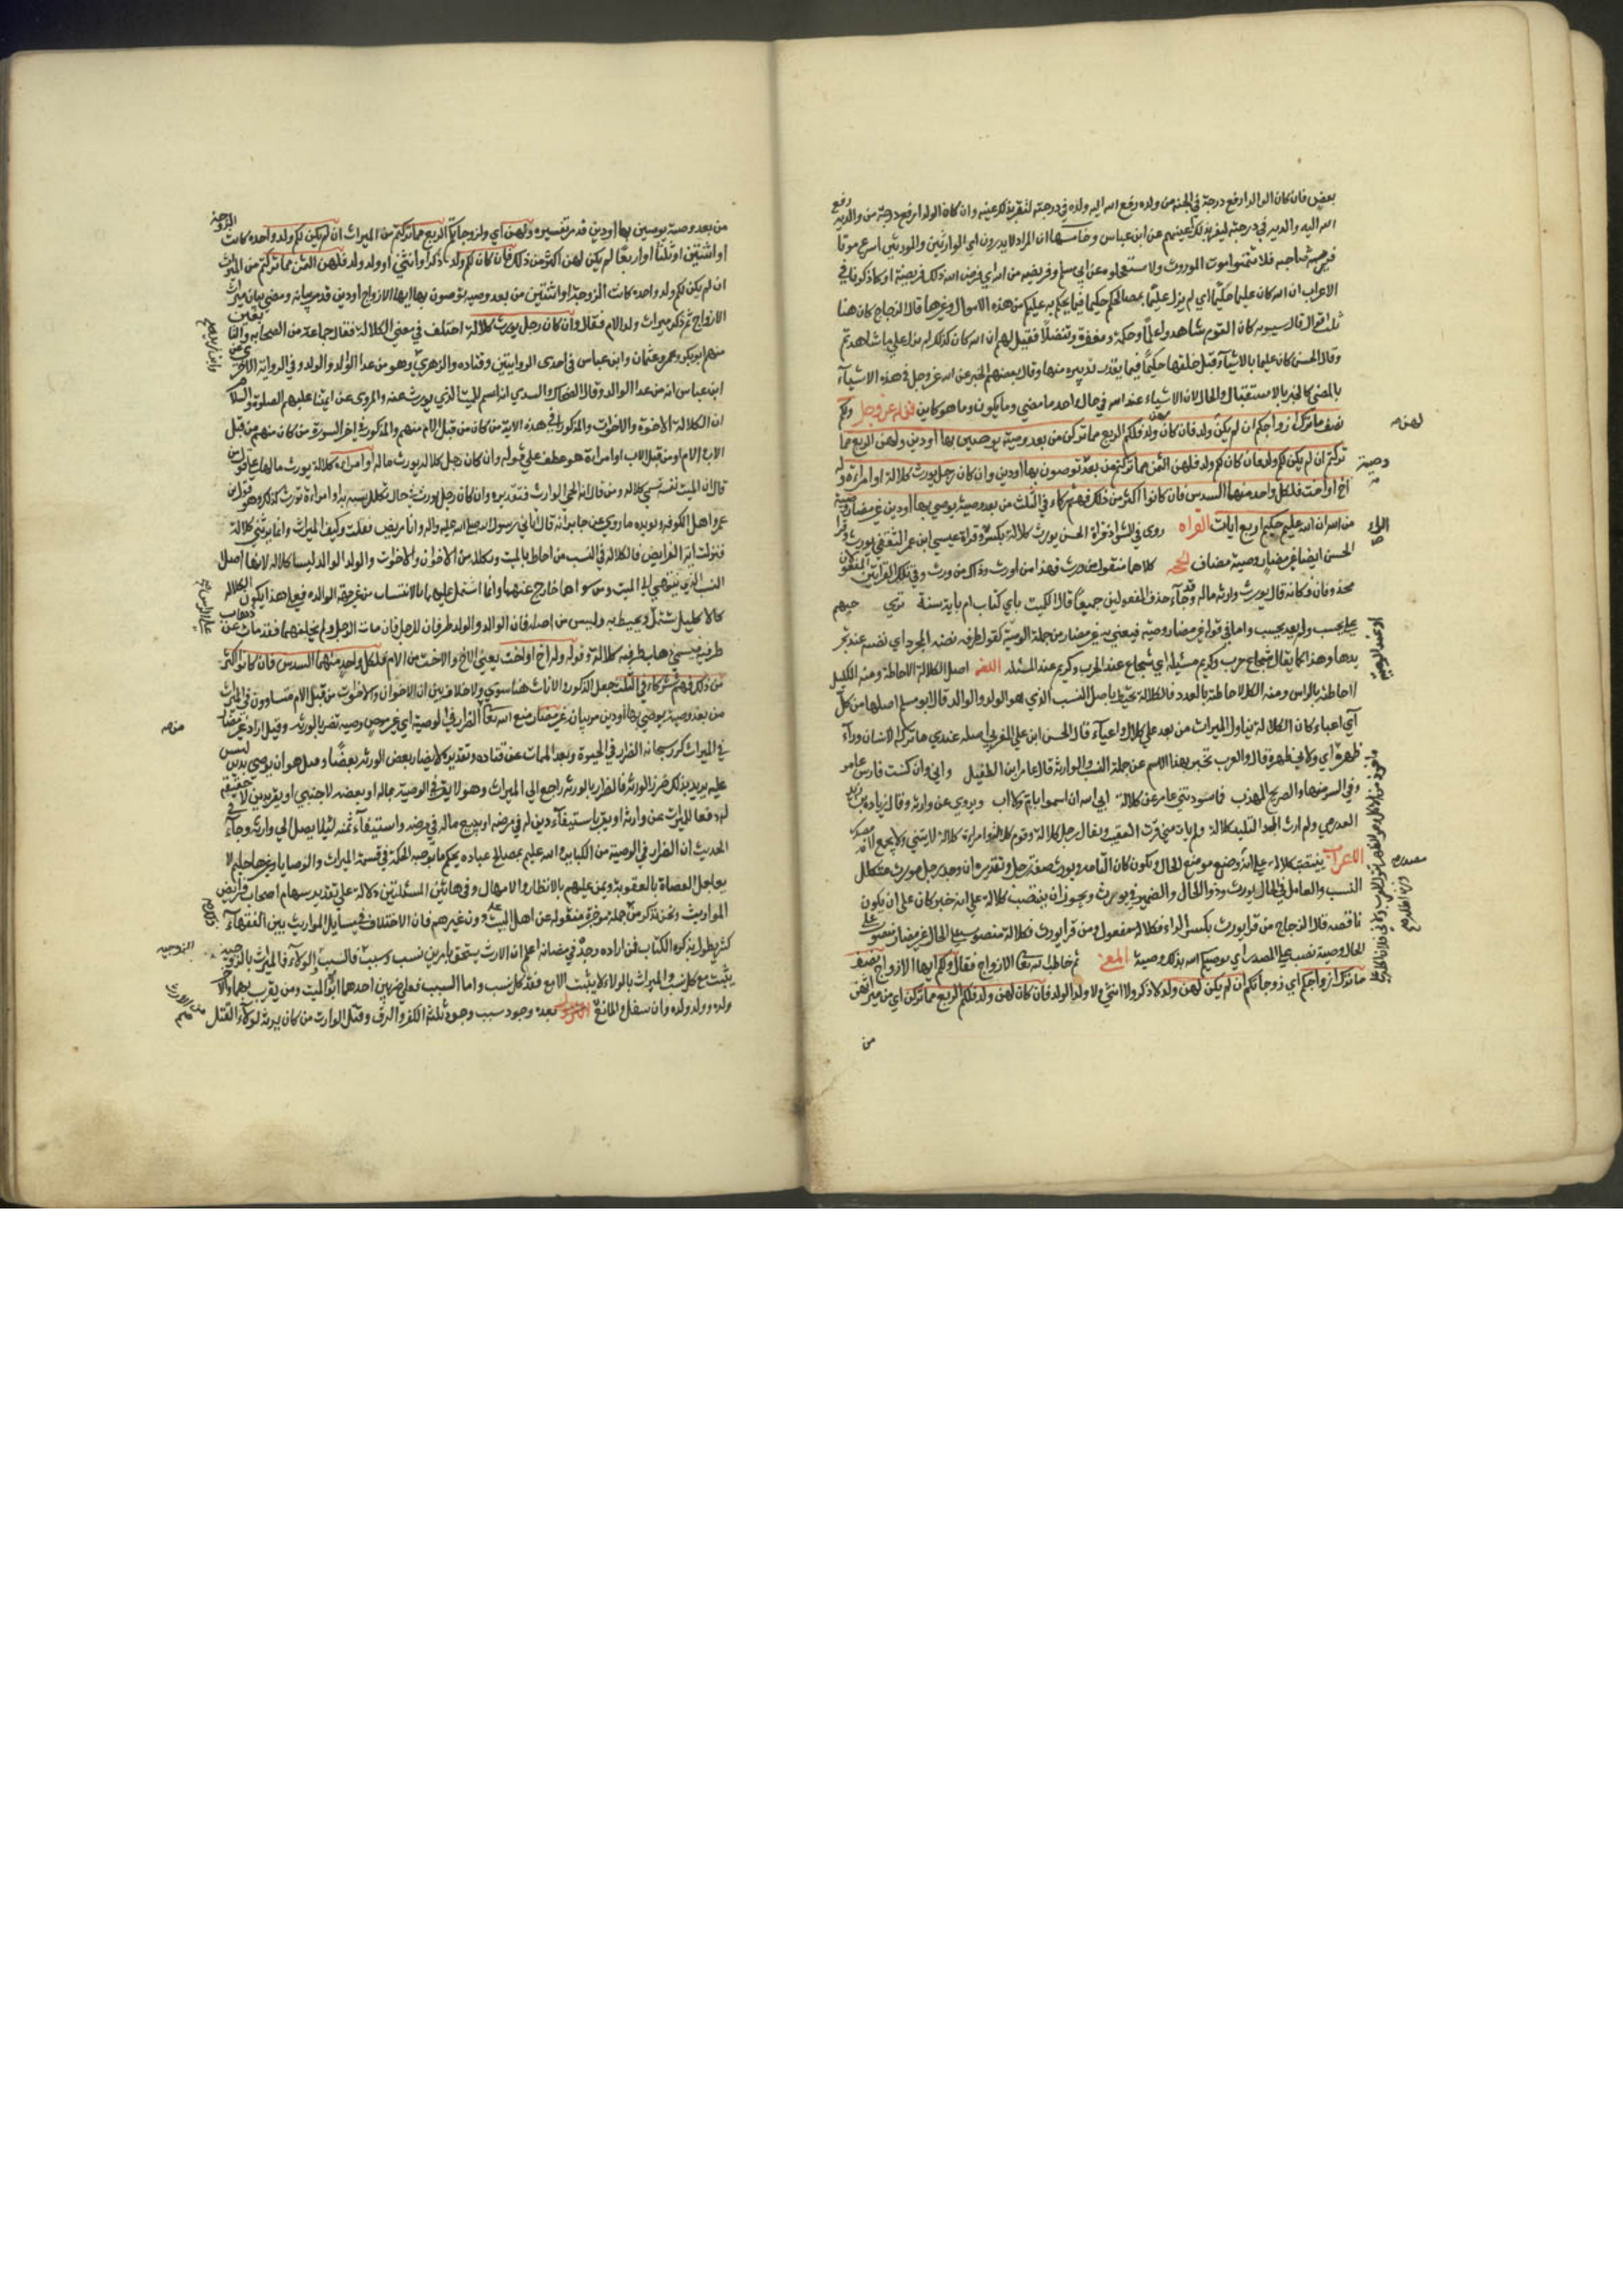 بعض فان كان الوالد ارفع درجة في الجنة من ولده رفع الله اليه ولده في درجته لتقر بذلك عينه وان كان الولد ارفع درجة من والديه رفع
الله اليه والديه في درجته ليقر بذلك اعينهم عن ابن عباس وخامسها ان المراد لا يدرون اي الوارثين والمورثين اسرع موتا
فيرثه صاحبه فلا تتمنوا موت الموروث ولا تستعجلوه عن ابي مسلم وفريضه من الله اي فرض الله ذلك فريضة او كما ذكرنا في
الاعراب ان الله كان عليما حكيما اي لم يزل عليما بمصالحكم حكيما فيما يحكم به عليكم من هذه الاموال وغيرها قال الزجاج كان هنا
ثلثة اقوال قال سيبويه كان القوم شاهدوا علما وحكمة ومغفرة وتفضلا فقيل لهم ان الله كان كذلك لم يزل على ما شاهدتم
وقال الحسن كان عليما بالاشياء قبل خلقها حكيما فيما يقدر تدبيره منها وقال بعضهم الخبر عن الله عز وجل في هذه الاشياء
بالمضي كالخبر بالاستقبال والحال لان الاشياء عند الله في حال واحد ما مضى وما يكون وما هو كاين قوله عز وجل ولكم
نصف ما ترك ازواجكم ان لم يكن ولد فان كان لهن ولد فلكم الربع مما تركن من بعد وصية يوصين بها او دين ولهن الربع مما
تركتم ان لم يكن لكم ولد فان كان لكم ولد فلهن الثمن مما تركتم من بعد توصون بها او دين وان كان رجل يورث كلالة او امراة وله
اخ او اخت فلكل واحد منهما السدس فان كانوا اكثر من ذلك فهم شركاء في الثلث من بعد وصية يوصي بها او دين غير مضار وصية
من الله ان الله عليم حكيم اربع ايات القراه روى في الشواذ قراة الحسن يورث كلالة بكسر وقراة عيسى ابن عمر الثقفي يورث وقرا
الحسن ايضا غير مضار وصية مضاف الحجه كلاهما منقول من ورث فهذا من اورث وذاك من ورث وفي تلك القراتين المفعولان
محذوفان فكانه قال يورث وارثه ماله وقد جاء حذف المفعولين جميعا قال الكميت باي كتاب ام باية سنة ترى حبهم
علي يحسب ولم يعد يحسب واما في قوله غير مضار وصية فيعني به غير مضار من جهة الوصية كقول طرفه بضة المجرد اي بضة عند تجر
يدها وهذا كما يقال شجاع حرب وكريم مسئلة اي شجاع عند الحرب وكريم عند المسئلة اللغه اصل الكلالة الاحاطة ومنه الاكليل
لاحاطته بالراس ومنه الكل لاحاطته بالعدد فالكلالة تحيط باصل النسب الذي هو الولد والوالد قال ابو مسلم اصلها من كل
اي اعيا فكان الكلالة تناول الميراث من بعد على كلال واعياء قال الحسن ابن علي المغربي اصله عندي ما تركه الانسان وراء
ظهره اي ولاني ظهره قال والعرب تخبر بهذا الاسم عن جملة النسب والوارثة قال عامر ابن الطفيل واني وان كنت فارس عامر
وفي السر منها والصريح المهذب فما سودتني عامر عن كلالة ابى الله ان اسمو بام ولا اب ويروى عن وارثة وقال زيادة بن زيد
العذري ولم ارث المجد التليد كلالة ولم يات مني فترة لعقيب ويقال رجل كلالة وقوم كلالة وامراة كلالة لا يثنى ولا يجمع لانه مصدر
الاعراب ينتصب كلالة على انه مصدر وضع موضع الحال ويكون كان التامة ويورث صفة رجل وتقديره ان وجد رجل مورث متكلل
النسب والعامل في الحال يورث وذو الحال والضمير في يورث ويجوز ان ينتصب كلالة على انه خبر كان على ان يكون
ناقصه قال الزجاج من قرا يورث بكسر الراء فكلالة مفعول ومن قرا يورث فكلالة منصوب على الحال غير مضار منصوب على
الحال وصية نصب على المصدر اي يوصيكم الله بذلك وصية المعنى ثم خاطب الله تعالى الازواج فقال ولكم ايها الازواج نصف
ما ترك ازواجكم اي زوجاتكم ان لم يكن لهن ولد لا ذكر ولا انثى ولا ولد الولد فان كان لهن ولد فلكم الربع مما تركن اي من ميراثهن
من
لهن
وصية
الراء
من بعد وصية يوصين بها او دين قد مر تفسيره ولهن اي ولزوجاتكم الربع مما تركتم من الميراث ان لم يكن لكم ولد واحده كانت الزوجة
او اثنتين او ثلثا او اربعا لم يكن لهن اكثر من ذلك فان كان لكم ولد ذكر او انثى او ولد ولد فلهن الثمن مما تركتم من الميراث
ان لم يكن لكم ولد واحده كانت الزوجة او اثنتين من بعد وصيه توصون بها ايها الازواج او دين قد مر بيانه ومضى بيان ميراث
الازواج ثم ذكر ميراث ولد الام فقال وان كان رجل يورث كلالة اختلف في معنى الكلالة فقال جماعة من الصحابه والتابعين
منهم ابو بكر وعمر وعثمان وابن عباس في احدى الروايتين وقتاده والزهري وهو من عدا الوالد والولد وفي الرواية الاخرى عن
ابن عباس انه من عدا الوالد وقال الضحاك والسدي انه اسم للميت الذي يورث عنه والمروي عن ايمتنا عليهم الصلوة والسلام
ان الكلالة الاخوة والاخوات والمذكور في هذه الاية من كان من قبل الام منهم والمذكور في اخر السورة من كان منهم من قبل
الاب والام او من قبل الاب او امراة هو عطف على قوله وان كان رجل كلالة يورث ماله او امراة كلالة يورث مالها على قول من
قال ان الميت نفسه تسمى كلاله ومن قال انه الحي الوارث فتقديره وان كان رجل يورث في حال تكلل نسبه به او امراءة تورث كذلك وهو قول ابن
عمر واهل الكوفه ويويده ما روي عن جابر انه قال اتاني رسول الله صلى الله عليه واله وانا مريض فقلت وكيف الميراث وانما يرثني كلالة
فنزلت اية الفرايض فالكلاله في النسب من احاط بالميت وتكلله من الاخوان والاخوات والولد والوالد ليسا بكلاله لانهما اصل
النسب الذي ينتهي الى الميت ومن سواهما خارج عنهما وانما اشتمل عليهما بالانتساب من غير جهة الوالده فعلى هذا يكون الكلاله
كالاكليل يشتمل ويحيط به وليس من اصله فان الوالد والولد طرفان للرجل فان مات الرجل ولم يخلفهما فقد مات عن ذهاب
طرفيه فسمي ذهاب طرفيه كلالة وقوله وله اخ او اخت يعني الاخ والاخت من الام فلكل واحد منهما السدس فان كانوا اكثر
من ذلك فهم شركاء في الثلث جعل الذكور والاناث هنا سوى ولا خلاف بين ان الاخوان والاخوات من قبل الام متساوون في الميراث
من بعد وصية يوصي بها او دين مر بيانه غير مضار منع الله تعالى الضرار في الوصية اي غير موص وصيه تضر بالورثه وقيل اراد غير مضار
في الميراث كره سبحانه الضرار في الحيوة وبعد الممات عن قتاده وتقديره لا يضار بعض الورثه بعضا وقيل هو ان يوصي بدين ليس
عليه يريد بذلك ضرر الورثة فالضرار بالورثه راجع الى الميراث وهو لا يقر في الوصية بماله او بعضه لاجنبي او يقر بدين لا حقيقة
له دفعا للميراث عن وارثه او يقر باستيفاء دين له في مرضه او يبيع ماله في مرضه واستيفاء ثمنه لئلا يصل الى وارثه وجاء في
الحديث ان الضرار في الوصية من الكباير والله عليم بمصالح عباده يحكم بما يوجبه الحكمة في قسمة الميراث والوصايا وغيرها حليم لا
يعاجل العصاة بالعقوبة ويمن عليهم بالانتظار والامهال وفي هاتين المسئلتين دلالة على تقدير سهام اصحاب فرايض
المواريث ونحن نذكر من جملة موجزة منقوله عن اهل البيت دون غيرهم فان الاختلاف في مسايل المواريث بين الفقهاء
كثير يطول بذكره الكتاب فمن اراده وجده في مضانه اعلم ان الارث يستحق بامرين نسب وسبب فالسبب الزوجيه والولاء فالميراث بالزوجية
يثبت مع كل نسب والميراث بالولاء لا يثبت الا مع فقد كل نسب واما النسب فعلى ضربين احدهما ابو الميت ومن يتقرب بهما والاخر
ولده وولد ولده وان سفل والمانع من الارث بعد وجود سبب وجوبه ثلثة الكفر والرق وقتل الوارث من كان يرثه لولا القتل
الزوجيه